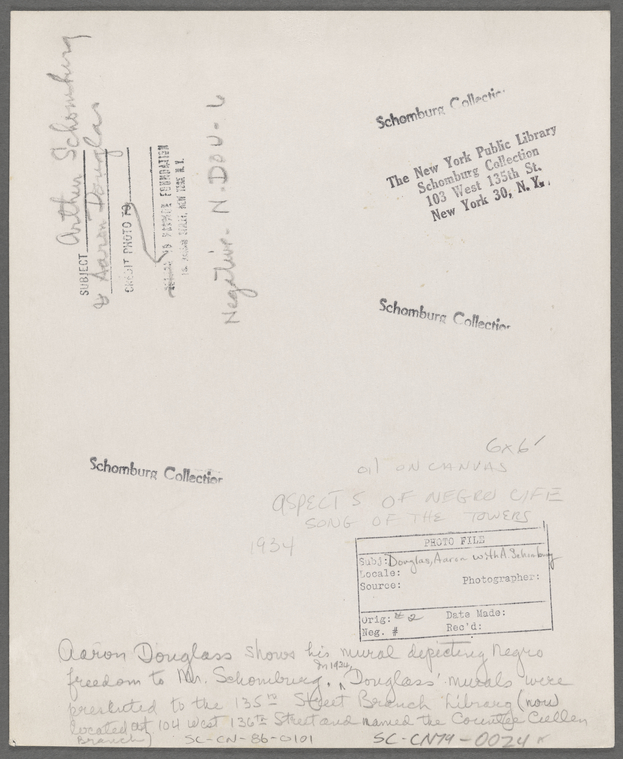 SUBJECT Arthur Schomburg
& Aaron Douglas
CREDIT PHOTO TO
FOUNDATION
NEW YORK N.Y.
Negative - N-DOU-6
Schomburg Collection
The New York Public Library
Schomburg Collection
103 West 135th St.
New York 30, N.Y.
Schomburg Collection
Schomburg Collection
6x6'
oil on canvas
ASPECTS OF NEGRO LIFE
SONG OF THE TOWERS
1934
PHOTO FILE
Subj: Douglas, Aaron with A. Schomburg
Locale:
Source: Photographer:
Orig: #2 Date Made:
Neg. # Rec'd:
Aaron Douglass shows his mural depecting Negro
freedom to Mr. Schomburg. In 1934, Douglass' murals were
presented to the 135th Street Branch Library (now
located at 104 West 136th Street and named the Countee Cullen
Branch)
SC-CN-86-0101
SC-CN79-0024